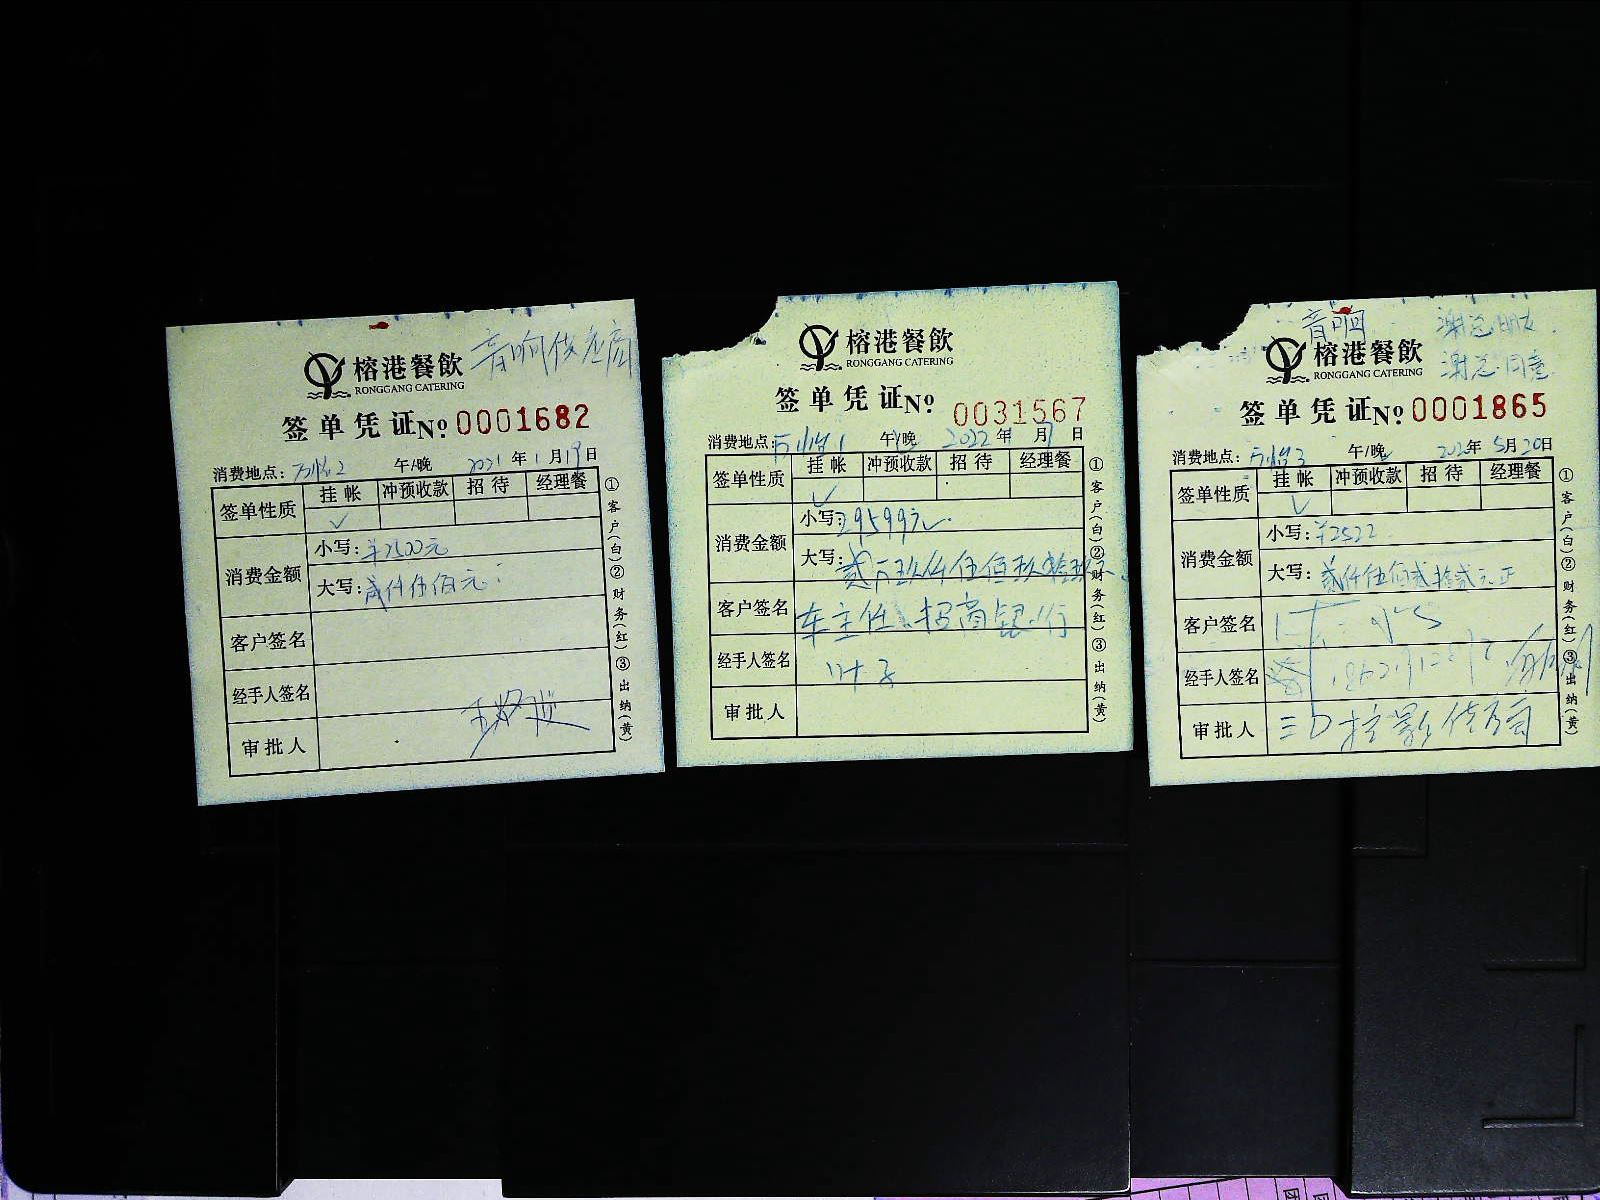 音响供应商
榕港餐飲
RONGGANG CATERING
签单凭证No 0001682
消费地点:万怡2 午/晚 2021年1月19日
签单性质 挂帐 冲预收款 招待 经理餐
✓
消费金额
小写:¥2500元
大写:贰仟伍佰元
客户签名
经手人签名
审批人
①客户(白)②财务(红)③出纳(黄)
榕港餐飲
RONGGANG CATERING
签单凭证No 0031567
消费地点:万怡1 午/晚 2022年 月7日
签单性质 挂帐 冲预收款 招待 经理餐
✓
消费金额
小写:29599元
大写:贰万玖仟伍佰玖拾玖
客户签名 车主任、招商银行
经手人签名 叶子
审批人
①客户(白)②财务(红)③出纳(黄)
音响
谢总朋友
谢总同意
榕港餐飲
RONGGANG CATERING
签单凭证No 0001865
消费地点:万怡3 午/晚 年5月20日
签单性质 挂帐 冲预收款 招待 经理餐
✓
消费金额
小写:¥2522
大写:贰仟伍佰贰拾贰元正
客户签名
经手人签名
审批人
①客户(白)②财务(红)③出纳(黄)